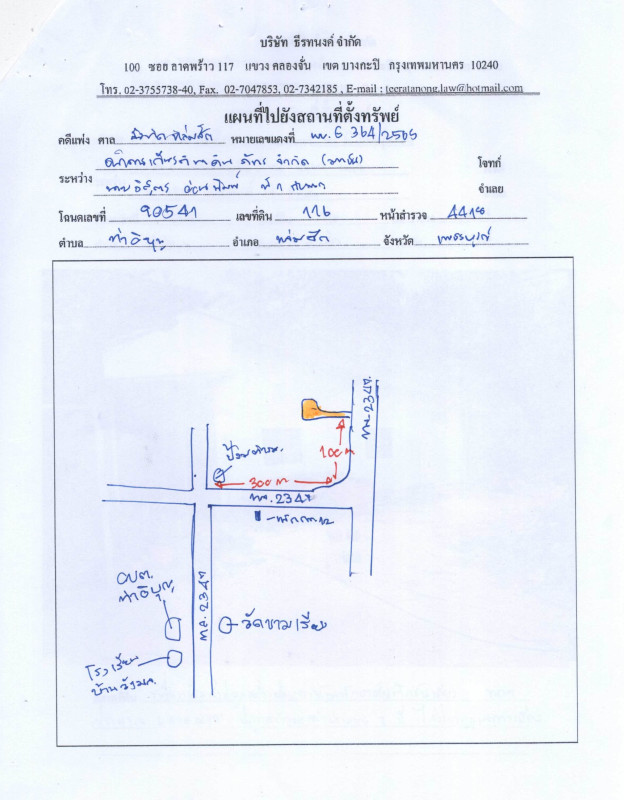 บริษัท ธีรทนงค์ จำกัด
100 ซอย ลาดพร้าว 117 แขวง คลองจั่น เขต บางกะปิ กรุงเทพมหานคร 10240
โทร. 02-3755738-40, Fax. 02-7047853, 02-7342185 , E-mail : teeratanong.law@hotmail.com
แผนที่ไปยังสถานที่ตั้งทรัพย์
คดีแพ่ง ศาล จังหวัดหล่มสัก หมายเลขแดงที่ ผบ.E 364/2565
โจทก์
ระหว่าง จำเลย
โฉนดเลขที่ 90541 เลขที่ดิน 116 หน้าสำรวจ 4418
ตำบล ท่าอิบุญ อำเภอ หล่มสัก จังหวัด เพชรบูรณ์
ทล.2347.
100 m
300 m
ทล.2347
อบต.
ท่าอิบุญ
ทล.2347
วัดขามเรียง
โรงเรียน